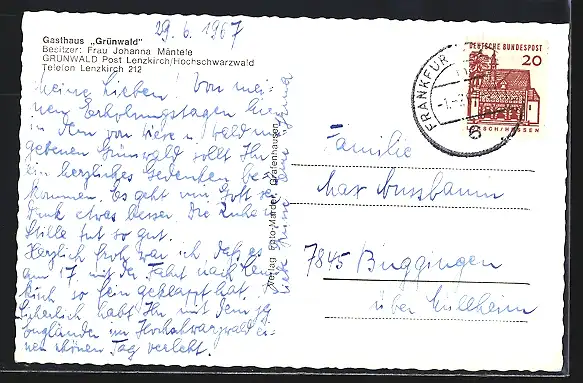 29.6.1967
Gasthaus „Grünwald"
Besitzer: Frau Johanna Mäntele
GRÜNWALD Post Lenzkirch/Hochschwarzwald
Telefon Lenzkirch 212
Meine Lieben! Von mei-
nen Erholungstagen hier
in dem von Wiese u. Wald um-
gebenen Grünwald sollt Ihr
ein herzliches Gedenken be-
kommen. Es geht mir Gott sei
Dank etwas besser. Die Ruhe u.
Stille tut so gut.
Herzlich froh war ich, daß es
am 17. mit der Fahrt nach Lenz-
kirch so fein geklappt hat.
Sicherlich habt Ihr mit dem jg.
Engländer im Hochschwarzwald ei-
nen schönen Tag verlebt.
Liebe Grüsse
Verlag Foto-Marder, Grafenhausen
DEUTSCHE BUNDESPOST
20
LORSCH/HESSEN
FRANKFUR
6
Familie
Max Nussbaum
7845 Buggingen
über Müllheim